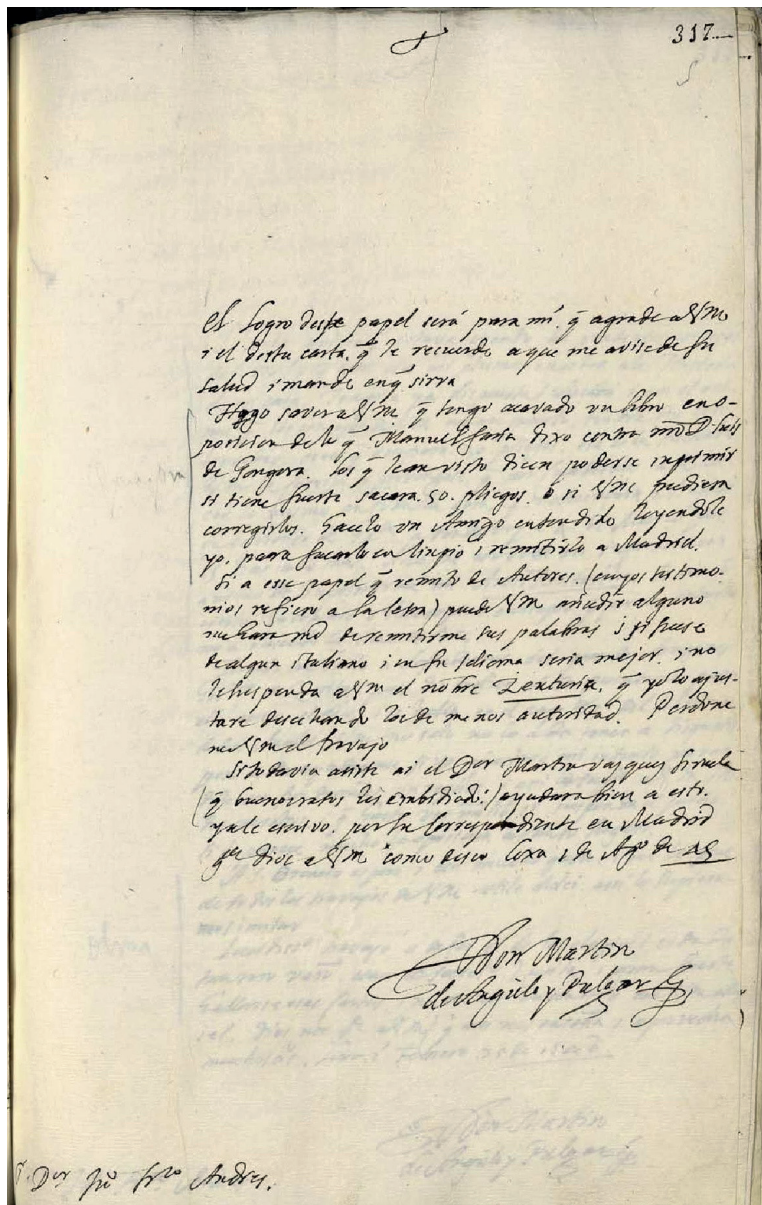 317
El logro deste papel será para mi q̃ agrade a Vm
i el desta carta q̃ le recuerdo a que me avise de su
salud i mande en q̃ sirva
Hago saver a Vm q̃ tengo acavado un libro en o-
posicion de lo q̃ Manuel faria dixo contra nr̃o D. Luis
de Gongora. los q̃ le an visto dicen poderse inprimir
si tiene suerte sacara. 50. pliegos. o si Vm pudiera
corregirlos. Hacelo un Amigo entendido leyendole
yo. para sacarlo en linpio i remitirlo a Madrid.
Si a esse papel q̃ remito de Autores. (cuyos testimo-
nios refiero a la letra) puede Vm añadir alguno
me hara md de remitirme sus palabras i si fuese
de algun italiano i en su idioma seria mejor. i no
le suspenda a Vm el nonbre Zenturia, q̃ yo lo ajus-
tare desechando los de menos autoridad. Perdone
me Vm el travajo
Si todavia asiste ai el Dor Martin vazquez Siruela
(q̃ buenos ratos les e enbidiado!) ayudara bien a esto.
ya le escrivo. por su Correspondiente en Madrid
gde dios a Vm como deseo Loxa 1 de Agto de
Don Martin
de Angulo y Pulgar
Dor Juo frco Andres.